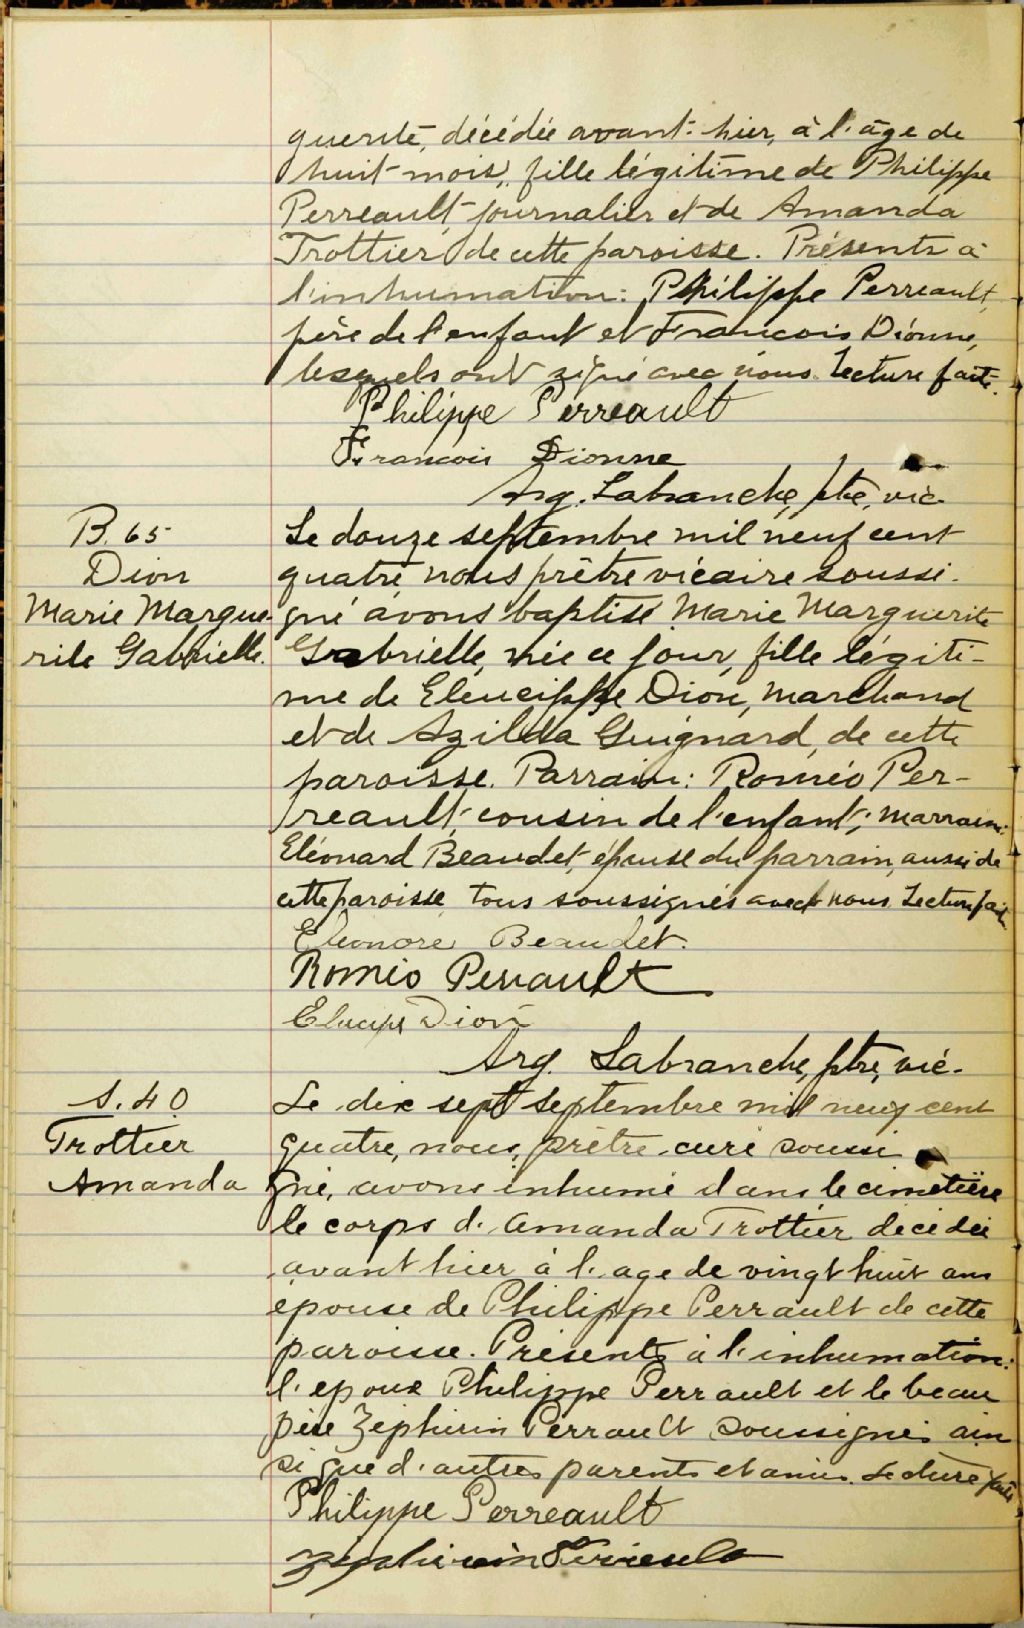 guerite, décédée avant-hier, à l'âge de
huit mois, fille légitime de Philippe
Perreault, journalier et de Amanda
Trottier, de cette paroisse. Présents à
l'inhumation: Philippe Perreault,
père de l'enfant et Francois Dionne,
lesquels ont signé avec nous. Lecture faite.
Philippe Perreault
Francois Dionne
Arg. Labranche, ptre, vic.
B. 65
Dion
Marie Margue-
rite Gabrielle.
Le douze septembre mil neuf cent
quatre, nous prêtre vicaire soussi-
gné avons baptisé Marie Marguerite
Gabrielle, née ce jour, fille légiti-
me de Eleucippe Dion, marchand
et de Azilda Guignard, de cette
paroisse. Parrain: Roméo Per-
reault, cousin de l'enfant; marraine:
Eléonard Beaudet, épouse du parrain, aussi de
cette paroisse, tous soussignés avec nous. Lecture faite
Eléonore Beaudet.
Roméo Perrault
Eleucipe Dion
Arg. Labranche, ptre, vic.
S. 40
Trottier
Amanda
Le dix sept septembre mil neuf cent
quatre, nous, prêtre, curé soussi
gné, avons inhumé dans le cimetière
le corps d. Amanda Trottier décédée
avant hier à l. age de vingt huit ans
épouse de Philippe Perrault de cette
paroisse. Présents à l'inhumation:
l'epoux Philippe Perrault et le beau
père Zephirin Perrault soussignés ain
si que d'autres parents et amis. Lecture faite
Philippe Perreault
Zephirin Perreault